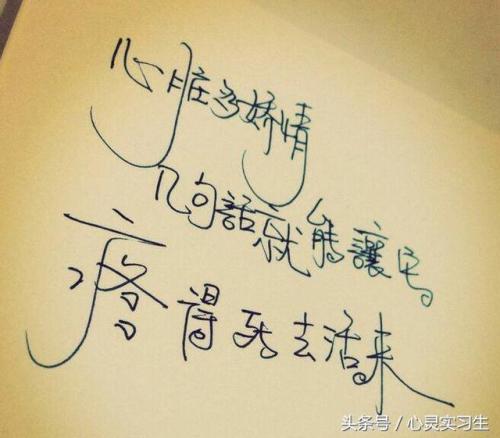 心脏多娇情
几句話就能讓它
疼得死去活来
头条号／心灵实习生